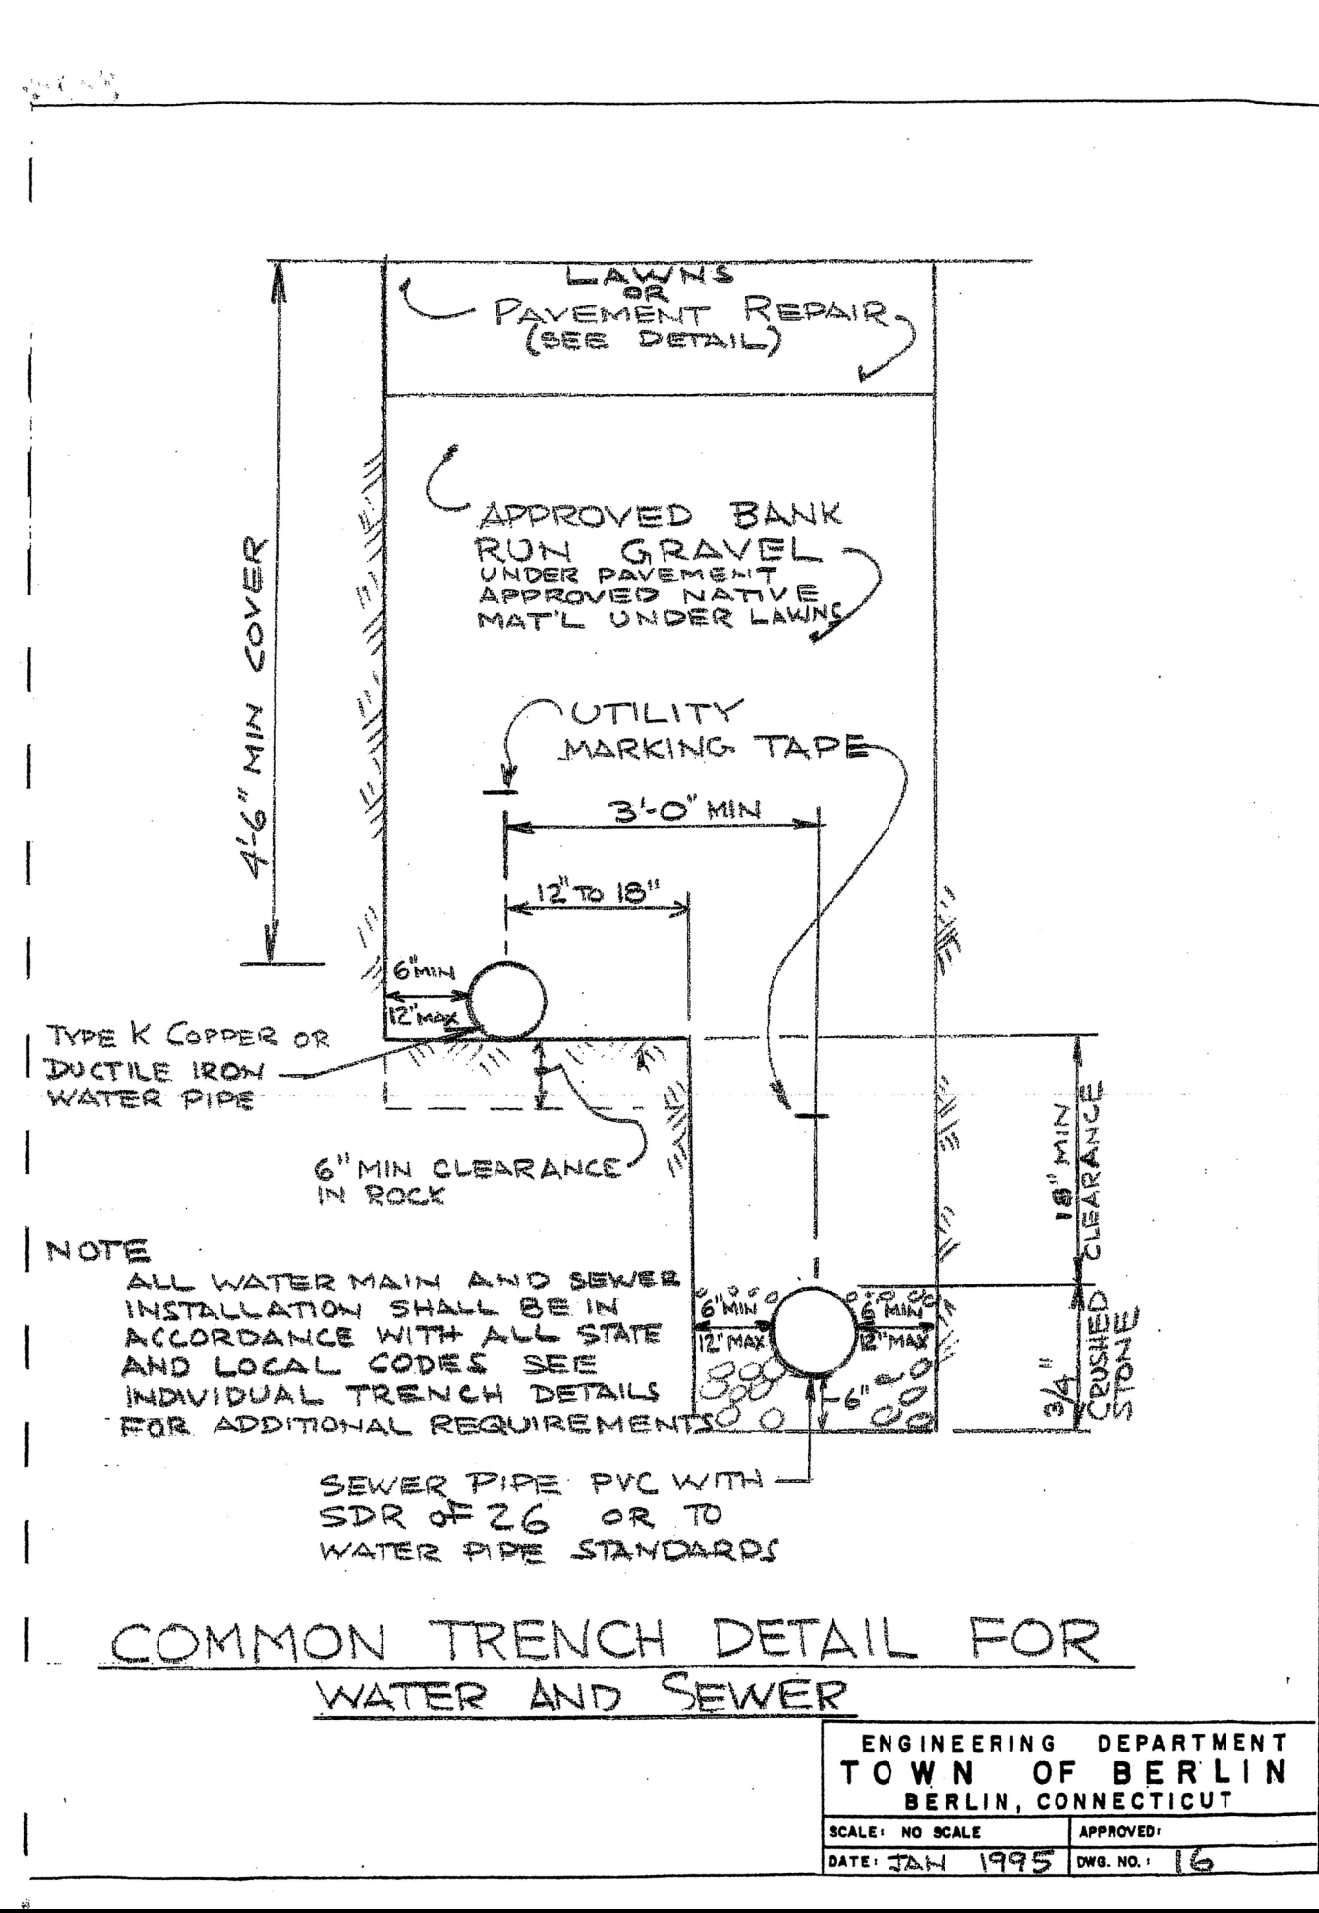 LAWNS
OR
PAVEMENT REPAIR
(SEE DETAIL)
4'-6" MIN COVER
APPROVED BANK
RUN GRAVEL
UNDER PAVEMENT
APPROVED NATIVE
MAT'L UNDER LAWNS
UTILITY
MARKING TAPE
3'-0" MIN
12" TO 18"
6" MIN
12" MAX
TYPE K COPPER OR
DUCTILE IRON
WATER PIPE
6" MIN CLEARANCE
IN ROCK
18" MIN
CLEARANCE
NOTE
ALL WATER MAIN AND SEWER
INSTALLATION SHALL BE IN
ACCORDANCE WITH ALL STATE
AND LOCAL CODES SEE
INDIVIDUAL TRENCH DETAILS
FOR ADDITIONAL REQUIREMENTS
6" MIN
12" MAX
6" MIN
12" MAX
6"
3/4"
CRUSHED
STONE
SEWER PIPE PVC WITH
SDR OF 26 OR TO
WATER PIPE STANDARDS
COMMON TRENCH DETAIL FOR
WATER AND SEWER
ENGINEERING DEPARTMENT
TOWN OF BERLIN
BERLIN, CONNECTICUT
SCALE: NO SCALE
APPROVED:
DATE: JAN 1995
DWG. NO.: 16